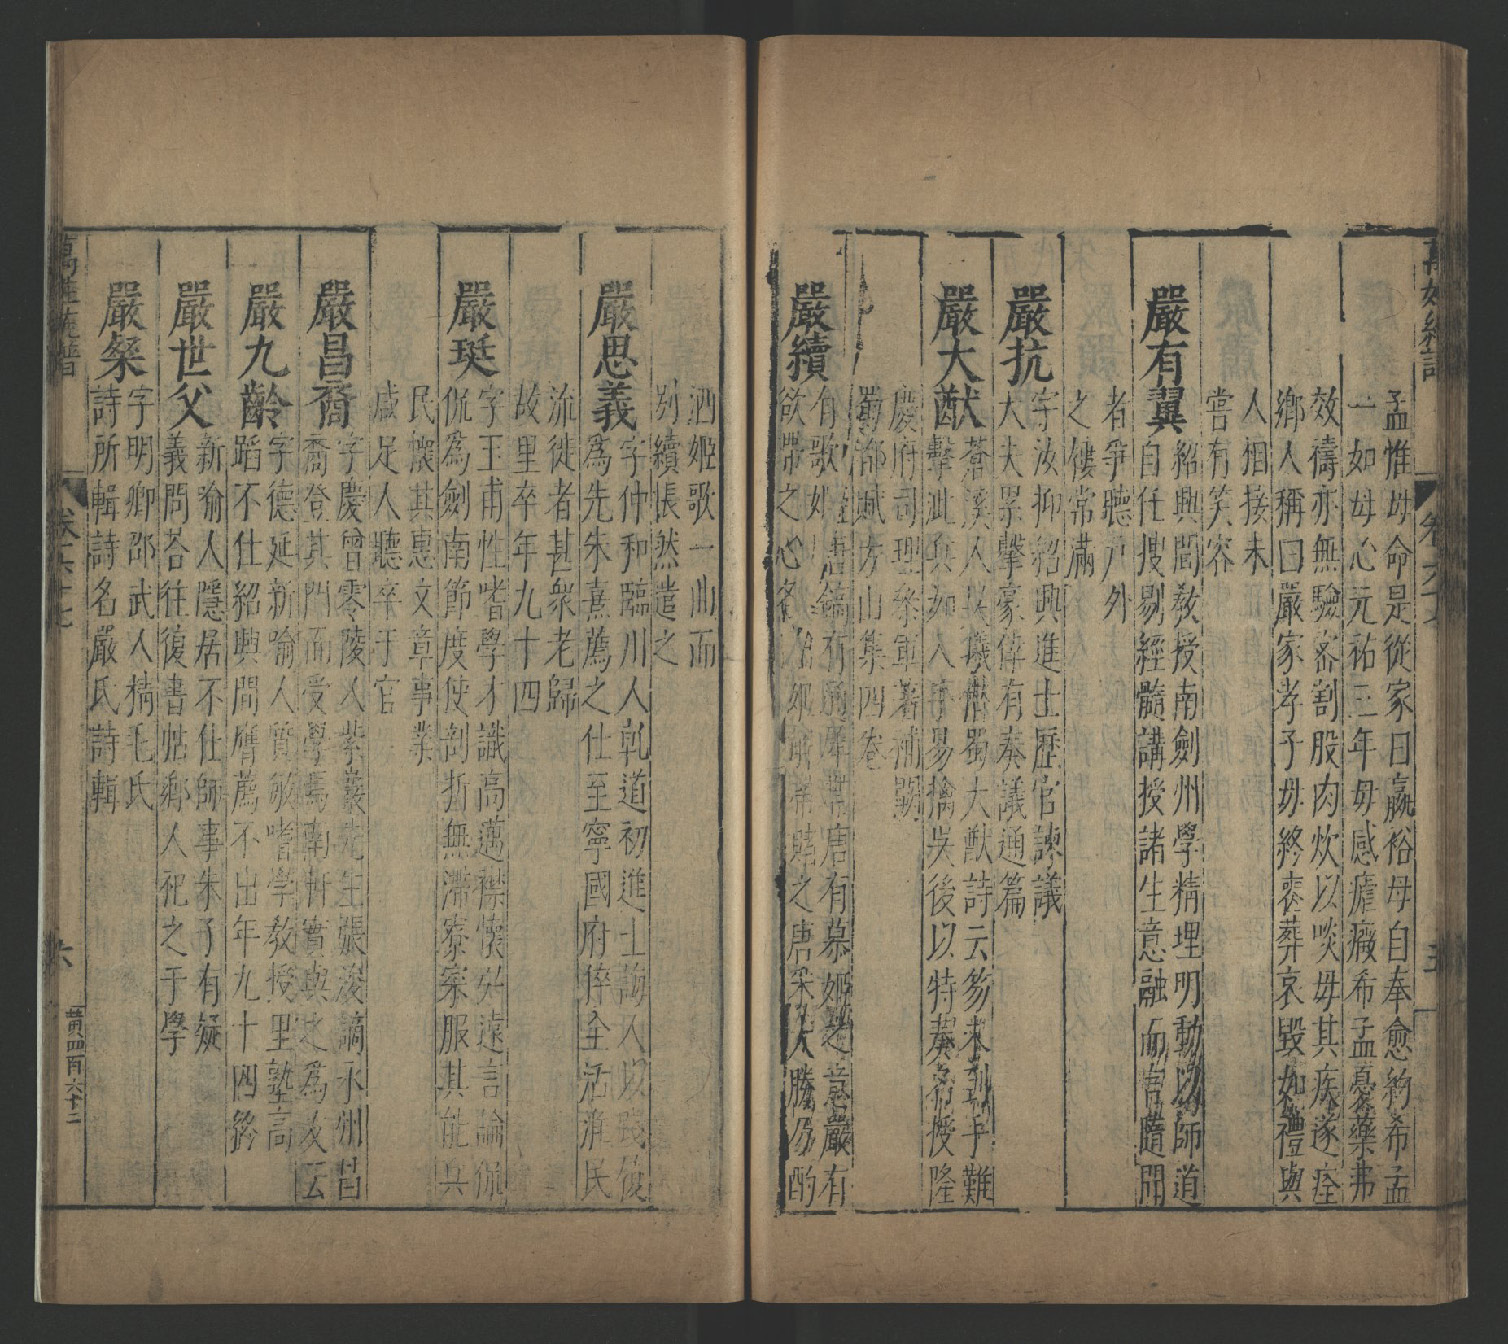 孟惟母命是從家日嬴俗母自奉愈約希孟
一如母心元祐三年母感瘡癥希孟憂藥弗
效禱亦無驗密割股肉炊以啖母其疾遂痊
鄉人稱曰嚴家孝子母終喪葬哀毀如禮與
人相接未
嘗有笑容
嚴有翼
紹興間教授南劍州學精理明動以師道
自任搜剔經髓講授諸生意融而官隨開
者爭聽戶外
之僂常滿
嚴抗
字汝抑紹興進士歷官諫議
大夫累擊豪偉有奏議通篇
嚴大猷
蒼溪人吳曦僣蜀大猷詩云芻未剉乎難
擊泚兵如人亦易擒吳後以特奏名授隆
慶府司理叅軍著補覲
蜀都賦方山集四卷
嚴續
有歌妓唐鎬有
欲帶之心各
唐有慕姬之意嚴有
賭之唐采大勝乃酌
酒姬歌一曲而
別續悵然遣之
嚴思義
字仲和臨川人乹道初進士
為先朱熹薦之仕至寧國府倅全活淮民
流徙者甚衆老歸
故里卒年九十四
嚴珽
字玉甫性嗜學才識高邁襟懷好遠言論侃
侃為劍南節度使剖哲無滯寮寀服其能兵
民懷其惠文章事業
感足人聽卒于官
嚴昌裔
字慶曾零陵人紫巖先生張浚謫永州昔
裔登其門而受學焉南軒實與之為友云
嚴九齡
字德延新喻人質敏嗜學教授里塾高
蹈不仕紹興間膺薦不出年九十四終
嚴世父
新喻人隱居不仕師事朱子有疑
義問荅往復書帖鄉人祀之于學
嚴粲
字明卿邵武人精毛氏
詩所輯詩名嚴氏詩輯
萬姓統譜
卷六十七
六